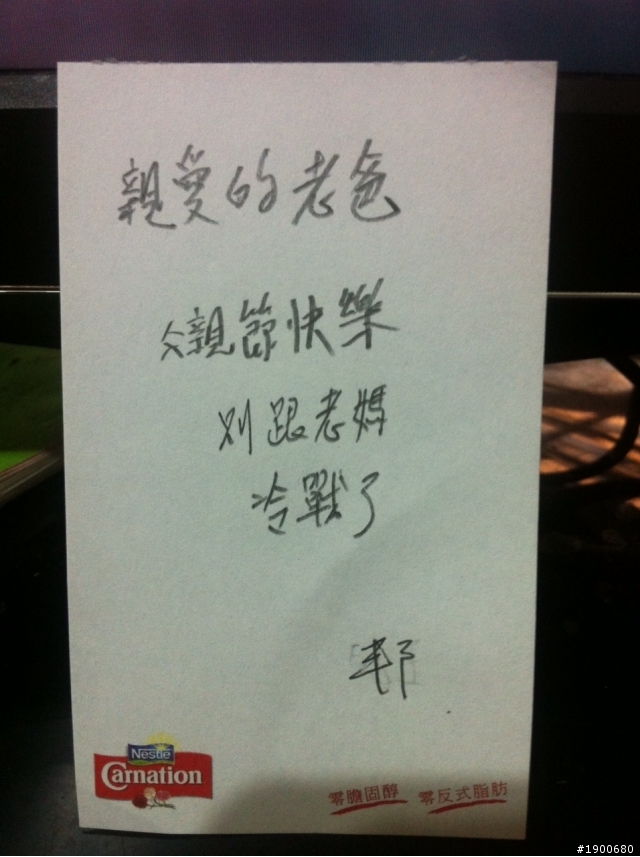 親愛的老爸
父親節快樂
別跟老媽
冷戰了
邦
Nestlé
Carnation
零膽固醇 零反式脂肪
#1900680